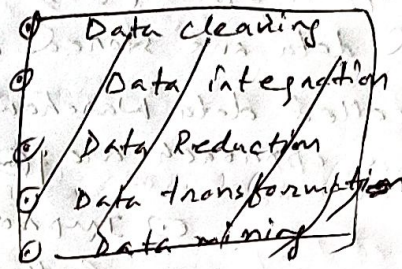 Data cleaning
Data integration
Data Reduction
Data transformation
Data mining